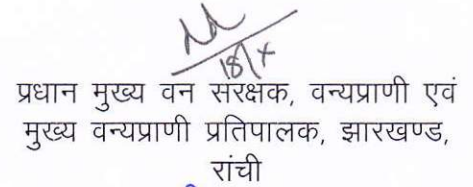 18/x
प्रधान मुख्य वन संरक्षक, वन्यप्राणी एवं
मुख्य वन्यप्राणी प्रतिपालक, झारखण्ड,
रांची